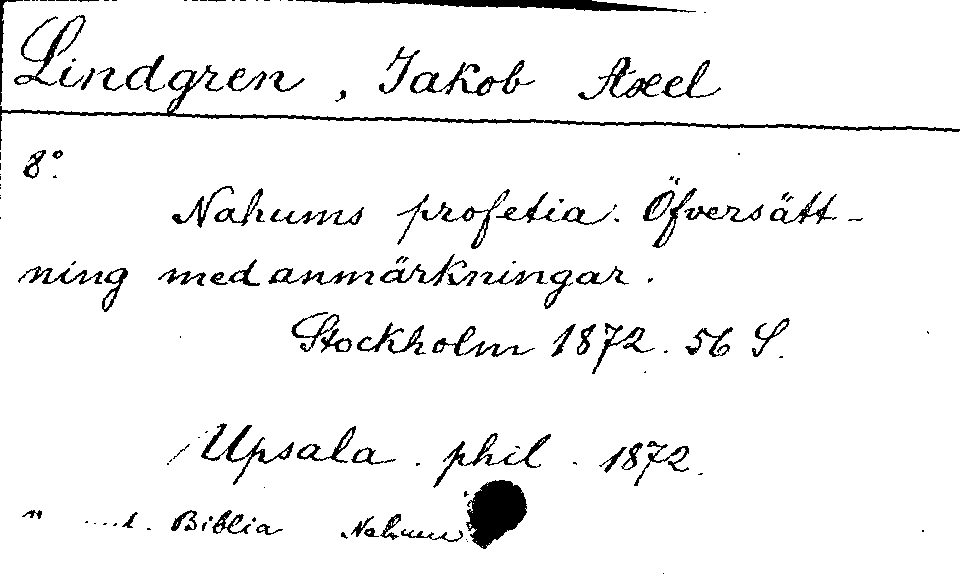 Lindgren, Jakob Axel
8°.
Nahums profetia. Öfversätt-
ning med anmärkningar.
Stockholm 1872. 56 S.
Upsala. phil. 1872.
Biblia Nahum